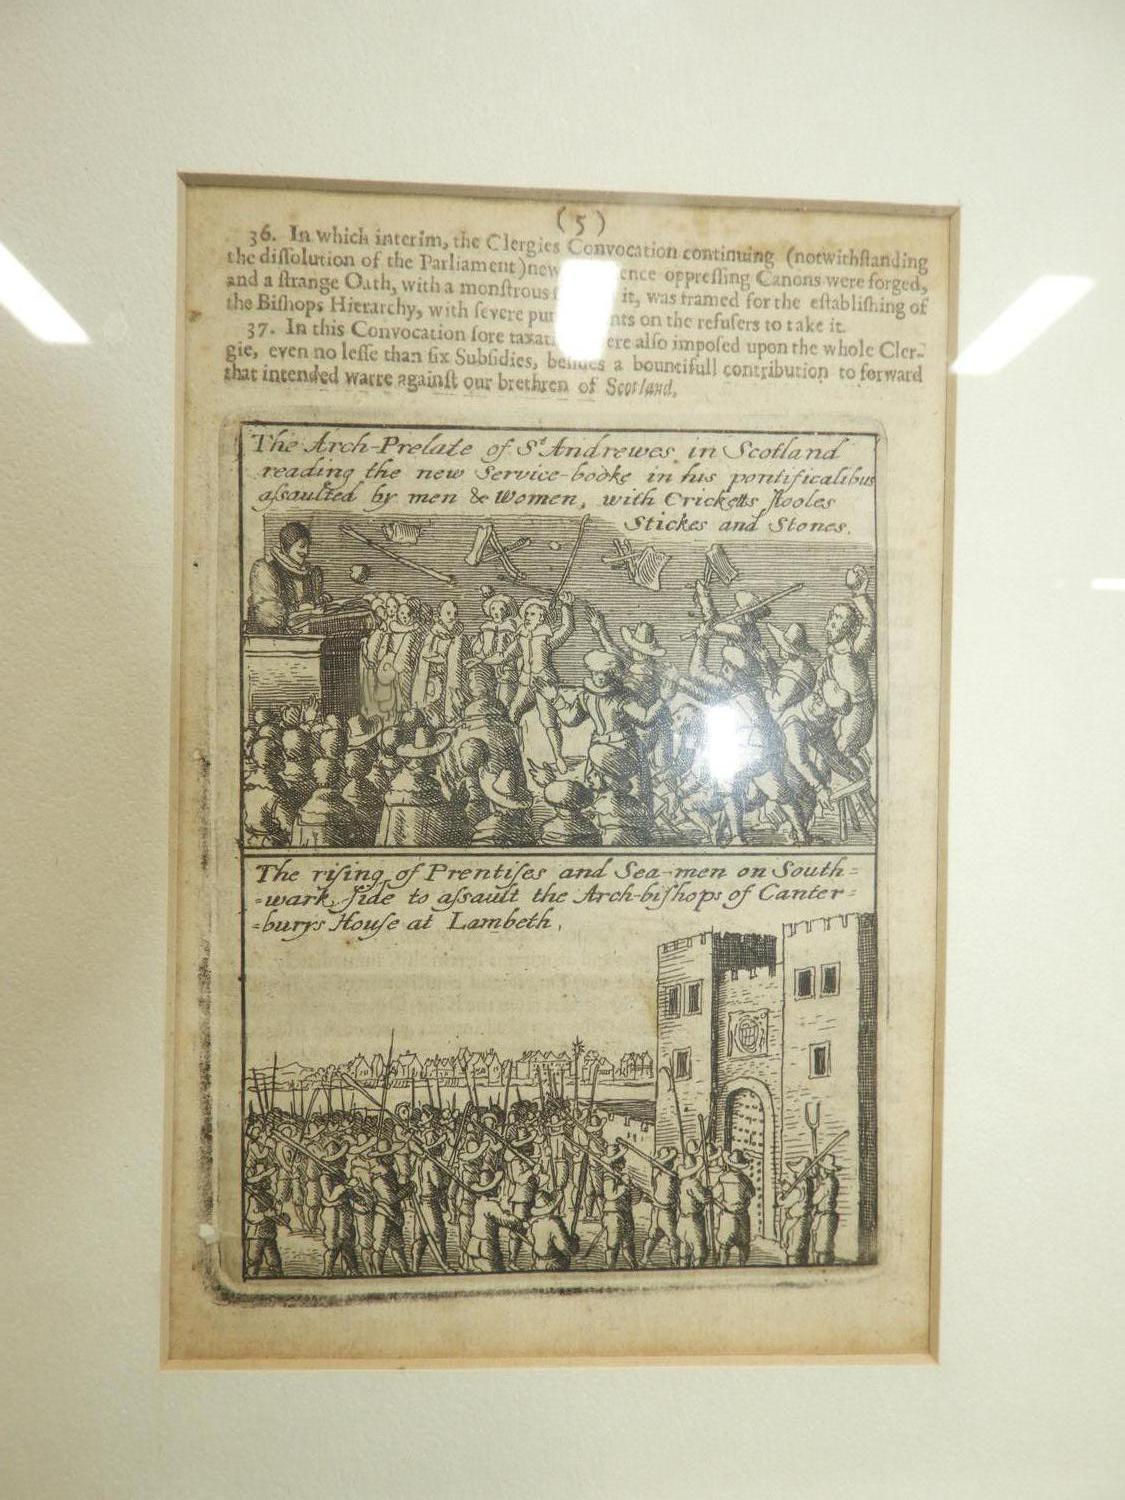 (5)
36. In which interim, the Clergies Convocation continuing (notwithſtanding
the diſſolution of the Parliament) new ence oppreſſing Canons were forged,
and a ſtrange Oath, with a monſtrous it, was framed for the eſtabliſhing of
the Biſhops Hierarchy, with ſevere pu nts on the refuſers to take it.
37. In this Convocation ſore taxat ere alſo impoſed upon the whole Cler-
gie, even no leſſe than ſix Subſidies, beſides a bountifull contribution to forward
that intended warre againſt our brethren of Scotland.
The Arch-Prelate of St Andrewes in Scotland
reading the new Service-booke in his pontificalibus
aſsaulted by men & Women, with Cricketts ſtooles
Stickes and Stones.
The riſing of Prentiſes and Sea-men on South=
=wark ſide to aſsault the Arch-biſhops of Canter=
=burys Houſe at Lambeth.